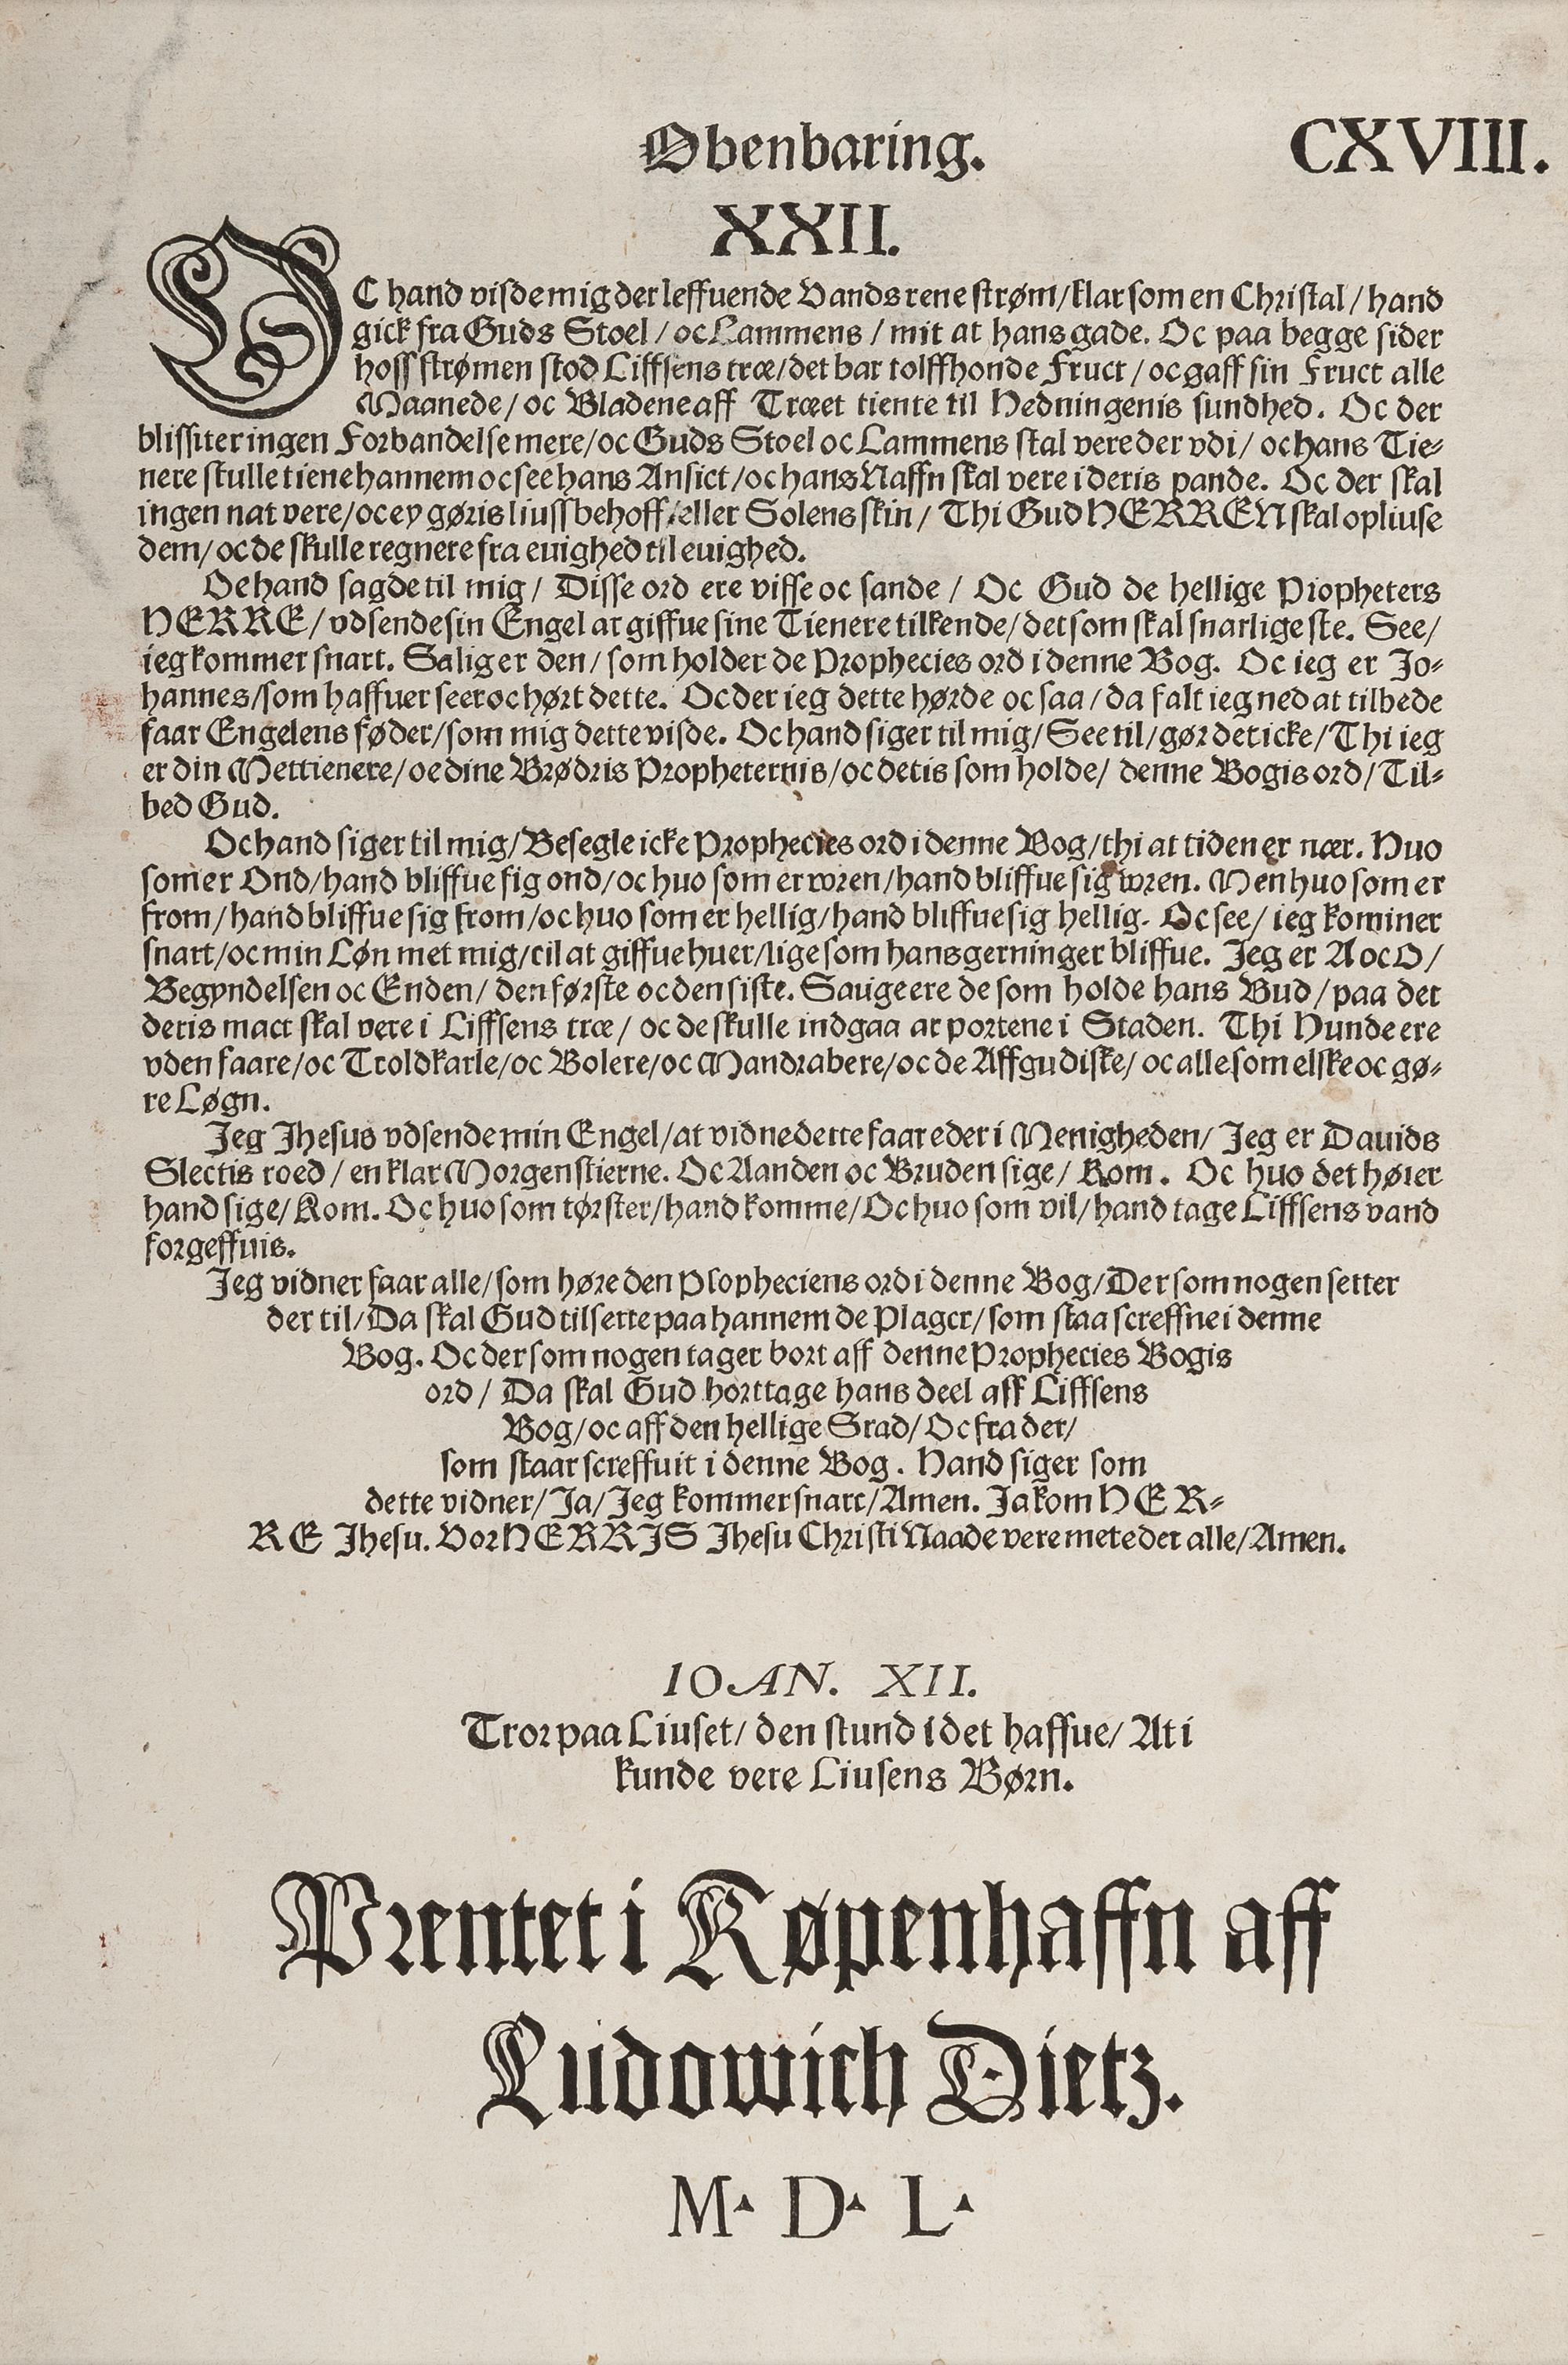 Obenbaring.
CXVIII.
XXII.
OC hand visde mig der leffuende Vands rene strøm/klar som en Christal/hand
gick fra Guds Stoel/oc Lammens/mit at hans gade. Oc paa begge sider
hoss strømen stod Liffsens træ/det bar tolffhonde Fruct/oc gaff sin Fruct alle
Maanede/oc Bladene aff Træet tiente til Hedningenis sundhed. Oc der
blissiter ingen Forbandelse mere/oc Guds Stoel oc Lammens skal vere der vdi/oc hans Tie-
nere skulle tiene hannem oc see hans Ansict/oc hans Naffn skal vere i deris pande. Oc der skal
ingen nat vere/oc ey gøris liuss behoff/eller Solens skin/Thi Gud HERREN skal opliuse
dem/oc de skulle regnere fra euighed til euighed.
Oc hand sagde til mig/Disse ord ere visse oc sande/Oc Gud de hellige Propheters
HERRE/vdsende sin Engel at giffue sine Tienere tilkende/det som skal snarlige ske. See/
ieg kommer snart. Salig er den/som holder de Prophecies ord i denne Bog. Oc ieg er Jo-
hannes/som haffuer seet oc hørt dette. Oc der ieg dette hørde oc saa/da falt ieg ned at tilbede
faar Engelens føder/som mig dette visde. Oc hand siger til mig/See til/gør det icke/Thi ieg
er din Mettienere/oc dine Brødris Propheternis/oc detis som holde/denne Bogis ord/Til-
bed Gud.
Oc hand siger til mig/Besegle icke Prophecies ord i denne Bog/thi at tiden er nær. Huo
som er Ond/hand bliffue sig ond/oc huo som er wren/hand bliffue sig wren. Men huo som er
from/hand bliffue sig from/oc huo som er hellig/hand bliffue sig hellig. Oc see/ieg kommer
snart/oc min Løn met mig/til at giffue huer/lige som hans gerninger bliffue. Jeg er A oc O/
Begyndelsen oc Enden/den første oc den siste. Sauge ere de som holde hans Bud/paa det
deris mact skal vere i Liffsens træ/oc de skulle indgaa at portene i Staden. Thi Hunde ere
vden faare/oc Troldkarle/oc Bolere/oc Mandrabere/oc de Affgudiske/oc alle som elske oc gø-
re Løgn.
Jeg Jhesus vdsende min Engel/at vidne dette faar eder i Menigheden/Jeg er Dauids
Slectis roed/en klar Morgenstierne. Oc Aanden oc Bruden sige/Kom. Oc huo det hører
hand sige/Kom. Oc huo som tørster/hand komme/Oc huo som vil/hand tage Liffsens vand
forgeffuis.
Jeg vidner faar alle/som høre den Psopheciens ord i denne Bog/Der som nogen setter
der til/Da skal Gud tilsette paa hannem de Plager/som staa screffne i denne
Bog. Oc der som nogen tager bort aff denne Prophecies Bogis
ord/Da skal Gud borttage hans deel aff Liffsens
Bog/oc aff den hellige Stad/Oc fra der/
som staar screffuit i denne Bog. Hand siger som
dette vidner/Ja/Jeg kommer snart/Amen. Ja kom HER-
RE Jhesu. Vor HERRIS Jhesu Christi Naade vere met eder alle/Amen.
IOAN. XII.
Tror paa Liuset/den stund i det haffue/At i
kunde vere Liusens Børn.
Prentet i Køpenhaffn aff
Ludowich Dietz.
M. D. L.